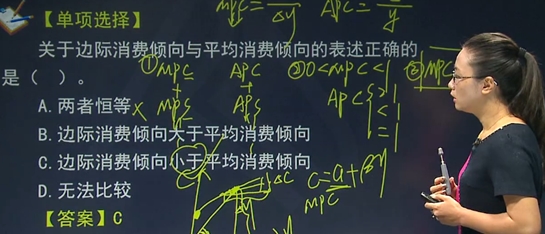 MPC = /ΔY APC = /y
【单项选择】
关于边际消费倾向与平均消费倾向的表述正确的
是（ ）。
① MPC APC ② 0<MPC<1 ③ MPC
+ +
MPS APS APC >1 <1 =1
A.两者恒等 ×
B.边际消费倾向大于平均消费倾向
C.边际消费倾向小于平均消费倾向
D.无法比较
ΔC
C=a+βy
MPC
【答案】C